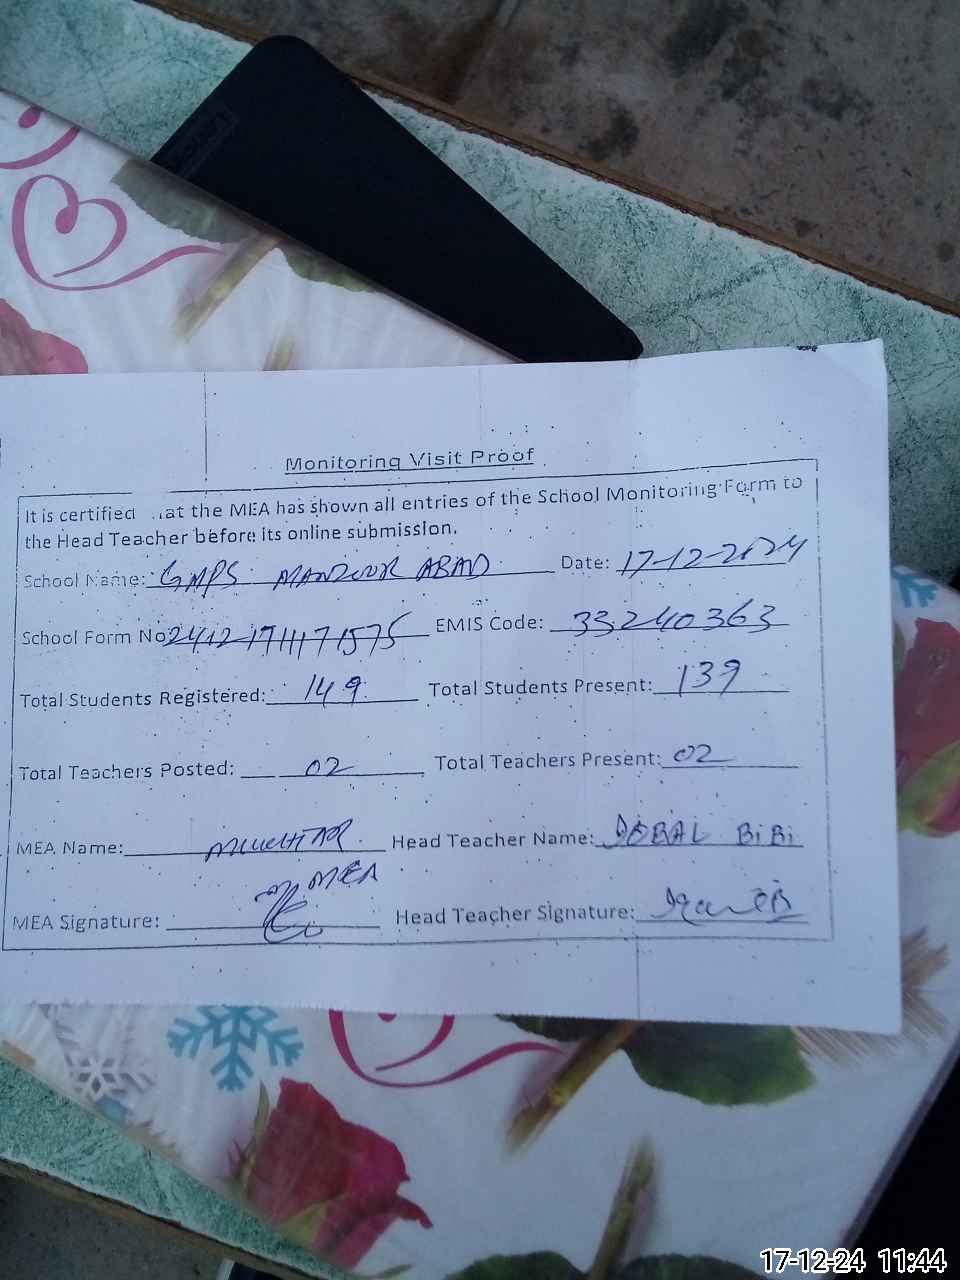 Monitoring Visit Proof
It is certified at the MEA has shown all entries of the School Monitoring Form to
the Head Teacher before its online submission.
School Name: GMPS MANZOOR ABAD Date: 17-12-2024
School Form No 24121711171575 EMIS Code: 33240363
Total Students Registered: 149 Total Students Present: 139
Total Teachers Posted: 02 Total Teachers Present: 02
MEA Name: MUKHTAR Head Teacher Name: IQBAL BiBi
MEA
MEA Signature: Head Teacher Signature:
17-12-24 11:44